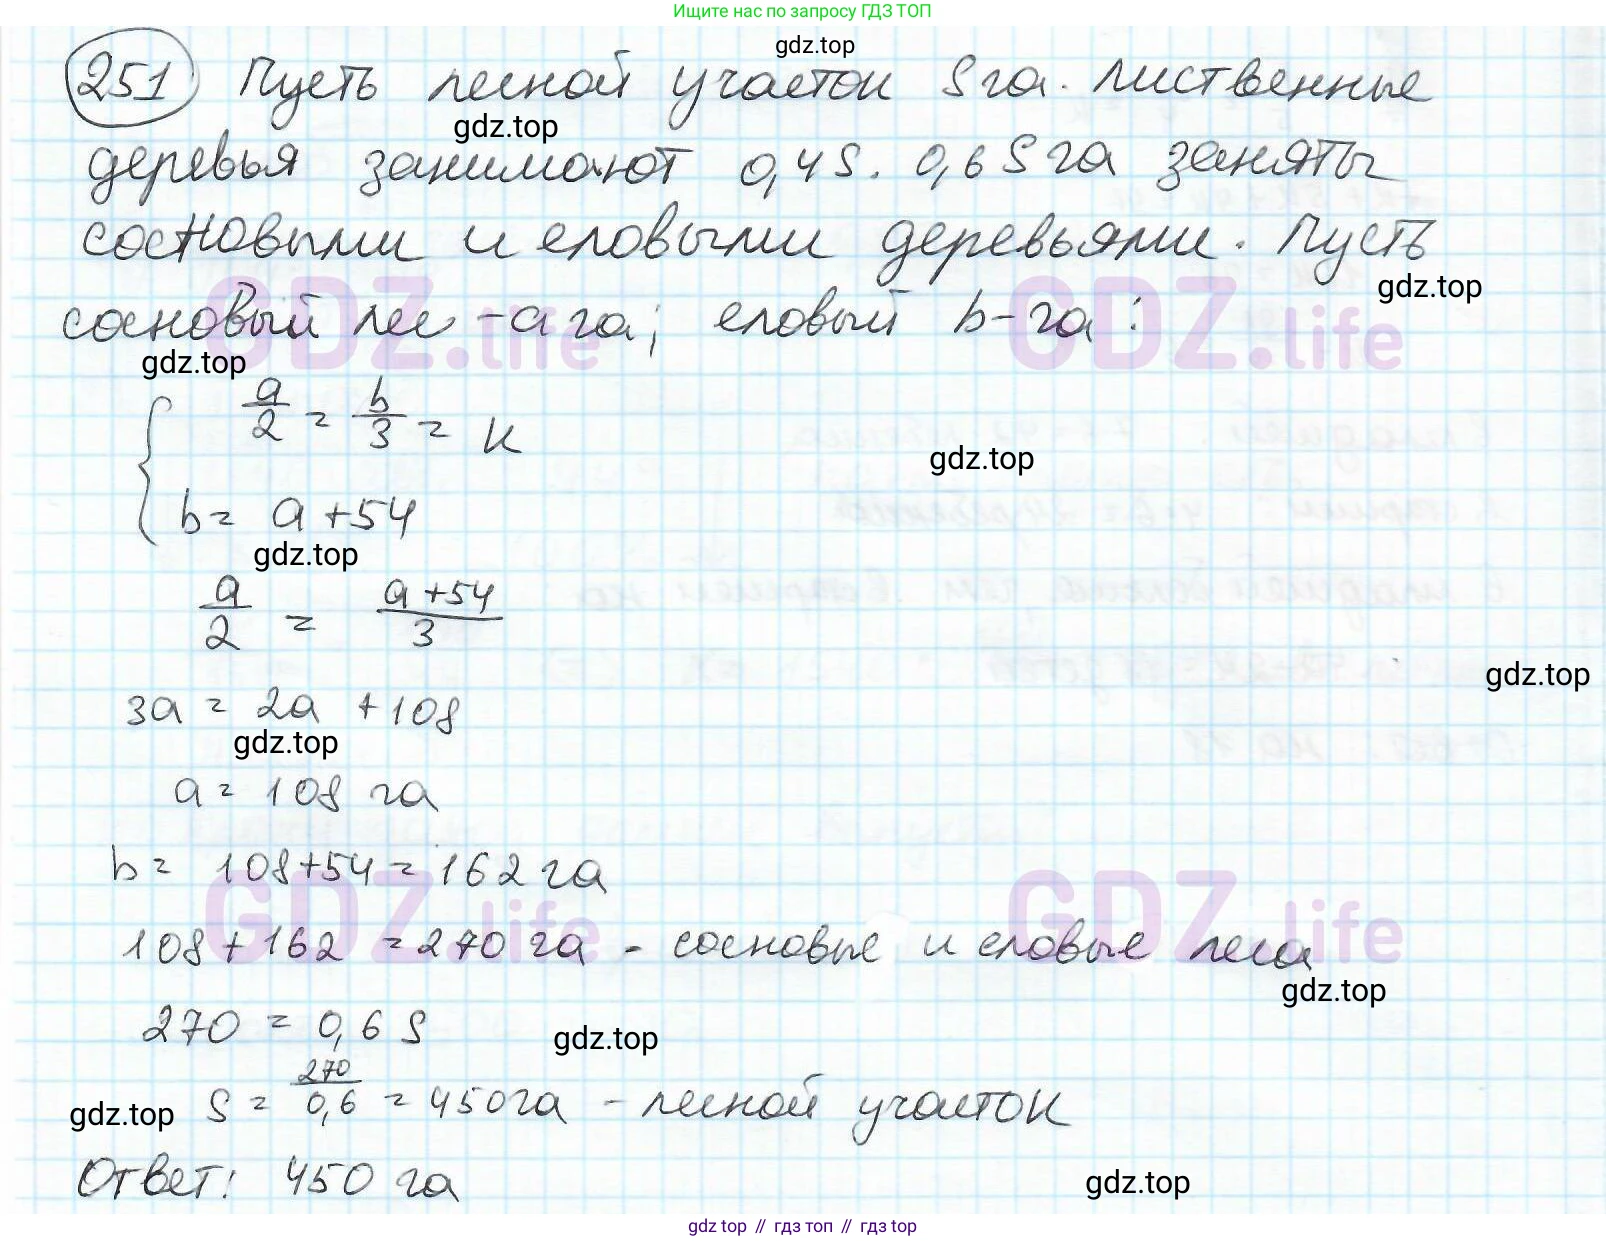 Ищите нас по запросу ГДЗ ТОП
gdz.top
251 Пусть лесной участок S га. Лиственные
gdz.top
деревья занимают 0,4S. 0,6 S га заняты
сосновыми и еловыми деревьями. Пусть
gdz.top
сосновый лес - a га; еловый b - га:
GDZ.life GDZ.life
gdz.top
a/2 = b/3 = k
gdz.top
b = a + 54
gdz.top
a/2 = (a + 54)/3
gdz.top
3a = 2a + 108
gdz.top
a = 108 га
b = 108 + 54 = 162 га
GDZ.life GDZ.life
108 + 162 = 270 га - сосновые и еловые леса
gdz.top
270 = 0,6 S
gdz.top
S = 270/0,6 = 450 га - лесной участок
gdz.top
Ответ: 450 га
gdz.top
gdz top // гдз топ // gdz top